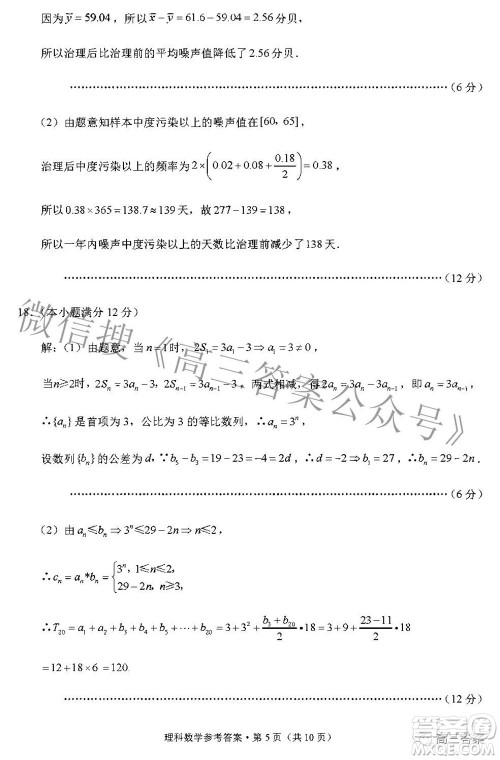 因为 ȳ = 59.04，所以 x̄ − ȳ = 61.6 − 59.04 = 2.56，
所以治理后比治理前的平均噪声值降低了 2.56 分贝．
……………………………………………………………（6 分）
（2）由题意知样本中度污染以上的噪声值在 [60，65]，
治理后中度污染以上的频率为 2×(0.02+0.08+0.18/2)=0.38，
所以 0.38×365=138.7≈139 天，故 277−139=138，
所以一年内噪声中度污染以上的天数比治理前减少了 138 天．
……………………………………………………………（12 分）
18．（本小题满分 12 分）
解：（1）由题意，当 n=1 时，2S₁=3a₁−3⇒a₁=3≠0，
当 n≥2 时，2Sₙ=3aₙ−3，2Sₙ₋₁=3aₙ₋₁−3，两式相减，得 2aₙ=3aₙ−3aₙ₋₁，即 aₙ=3aₙ₋₁，
∴{aₙ} 是首项为 3，公比为 3 的等比数列，∴aₙ=3ⁿ，
设数列 {bₙ} 的公差为 d，∵b₅−b₃=19−23=−4=2d，∴d=−2⇒b₁=27，∴bₙ=29−2n．
……………………………………………………………（6 分）
（2）由 aₙ≤bₙ⇒3ⁿ≤29−2n⇒n≤2，
∴cₙ=aₙ*bₙ={3ⁿ，1≤n≤2，
29−2n，n≥3，
∴T₂₀=a₁+a₂+b₃+b₄+b₅+⋯+b₂₀=3+3²+(b₃+b₂₀)/2·18=3+9+(23−11)/2·18
=12+18×6=120.
……………………………………………………………（12 分）
理科数学参考答案·第 5 页（共 10 页）
微信搜《高三答案公众号》
高三答案